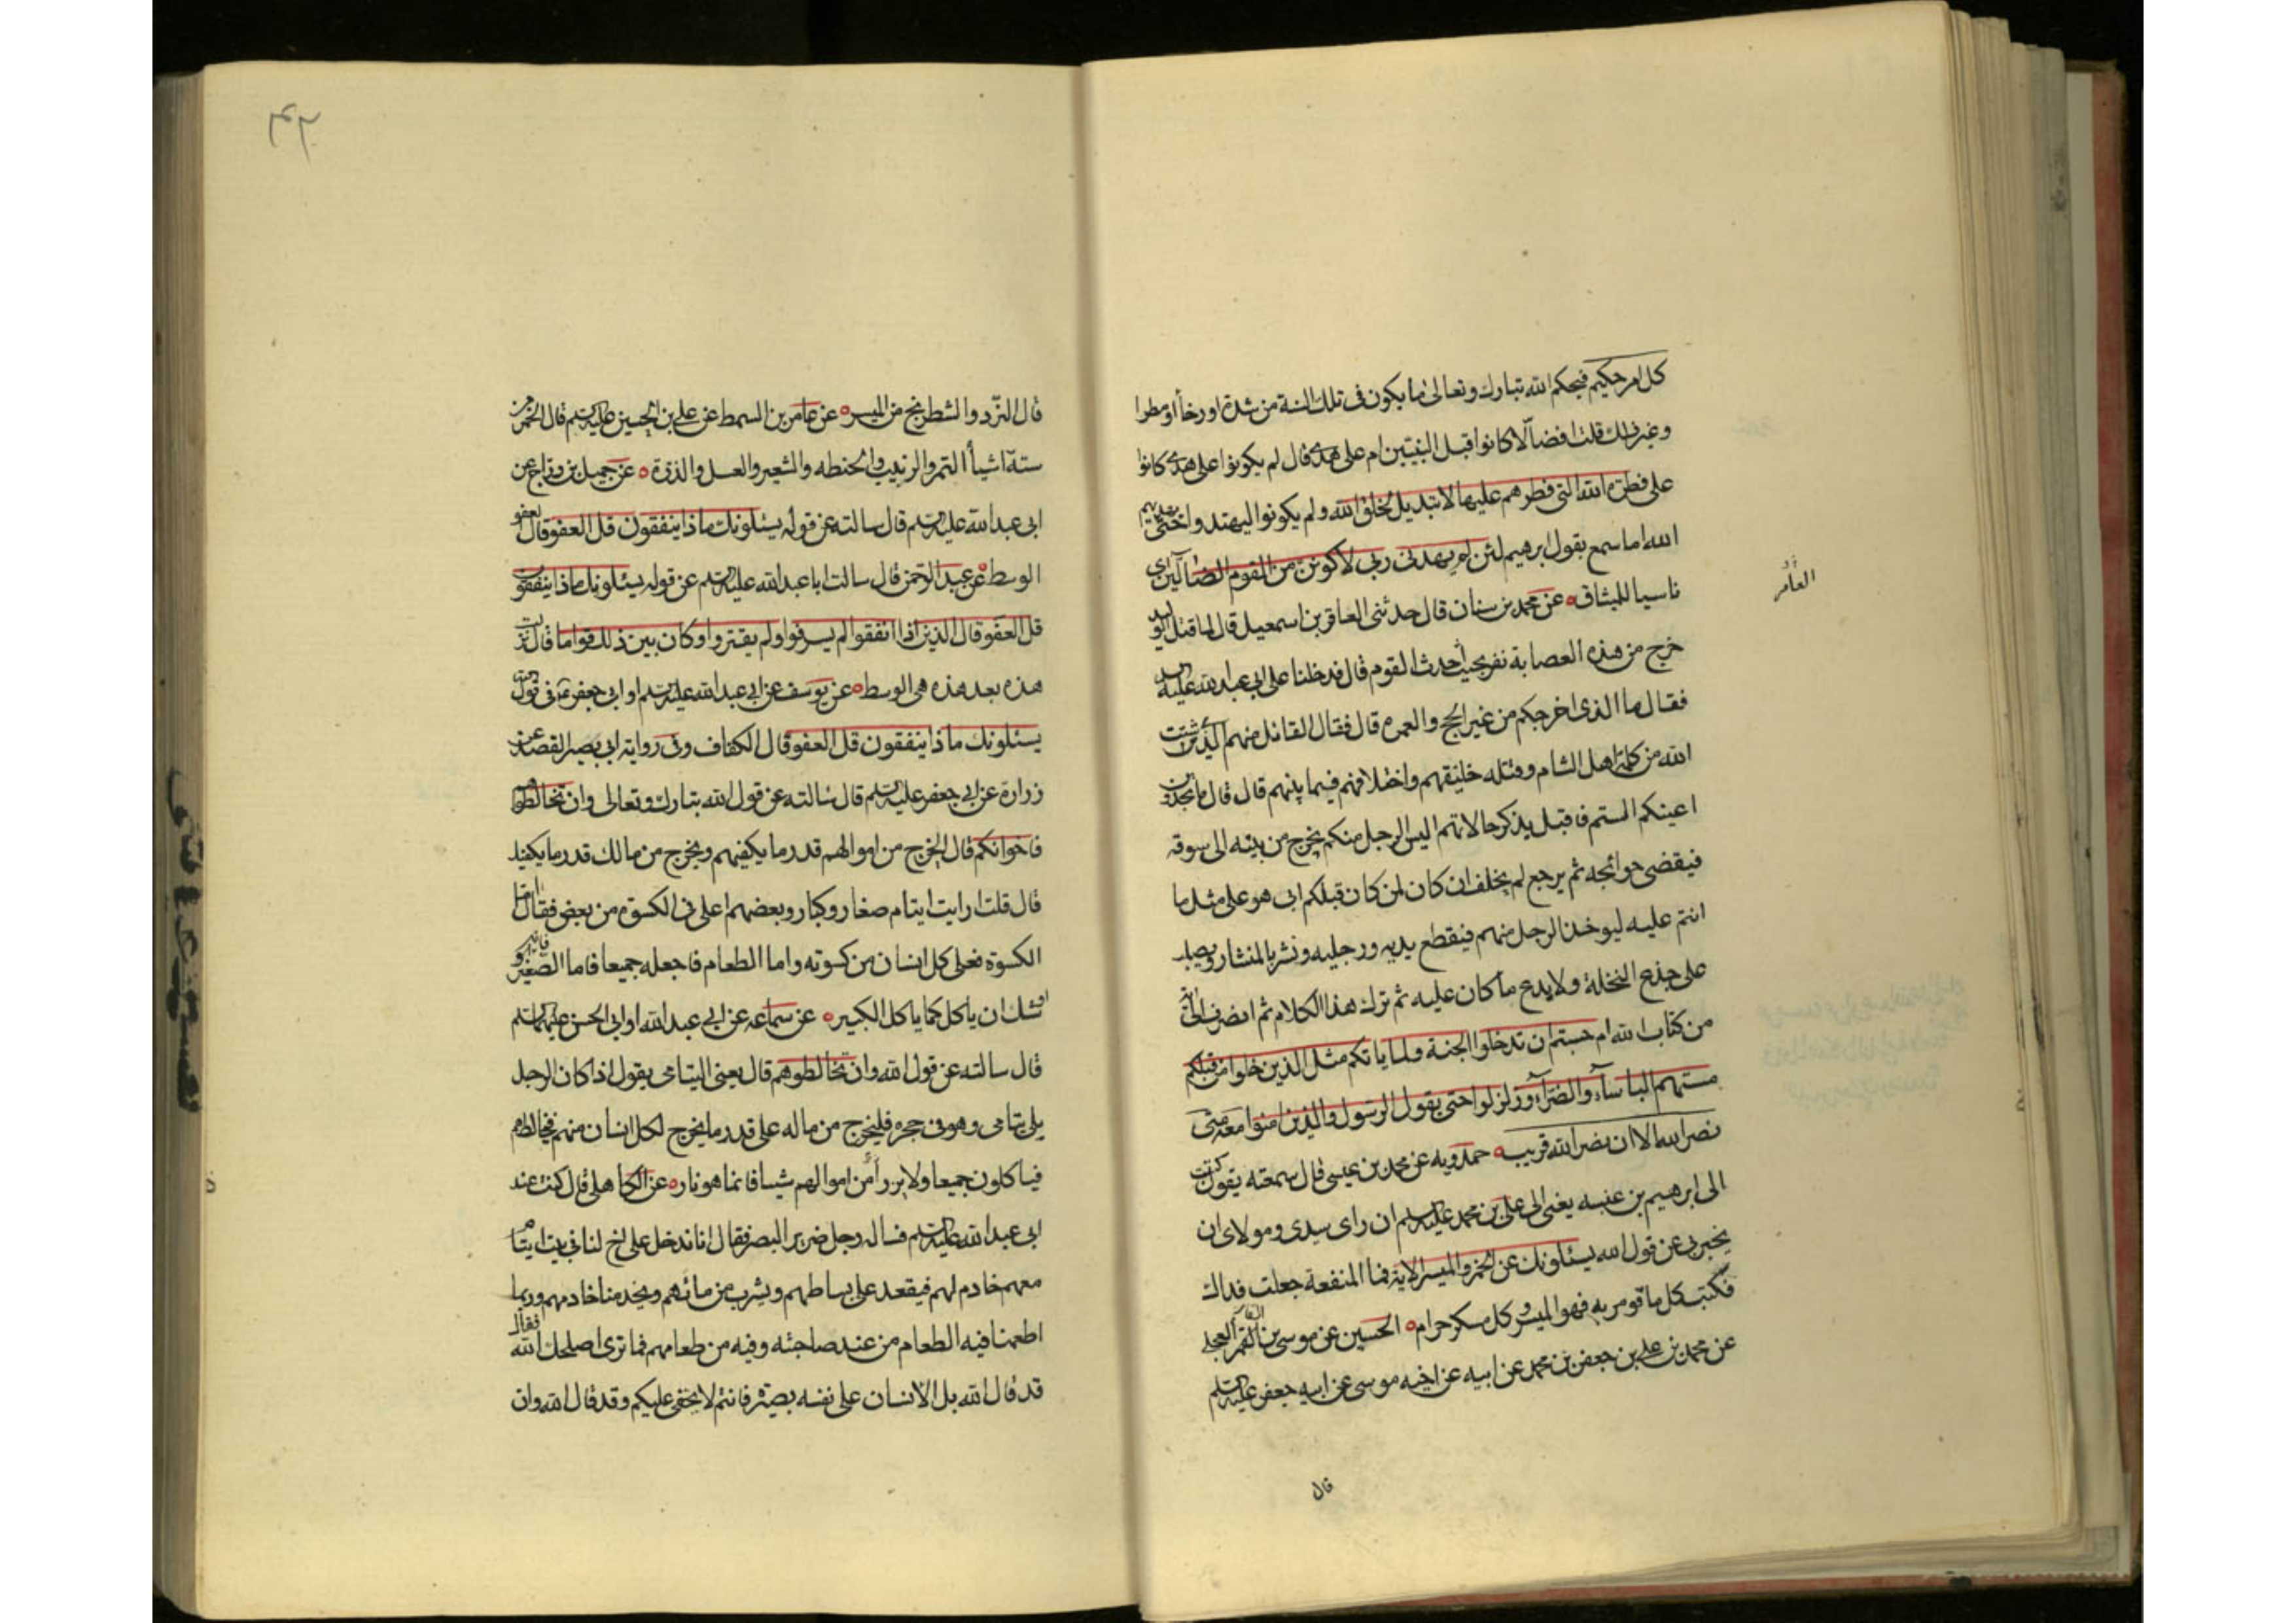 كل امر حكيم فيحكم الله تبارك وتعالى ما يكون فى تلك السنة من شدة او رخأ او مطرا
وغير ذلك قلت افضالّا كانوا قبل النبيّين ام على هدى قال لم يكونوا على هدى كانوا
على فطرة الله التى فطرهم عليها لا تبديل لخلق الله ولم يكونوا ليهتدوا حتى يهديهم
الله اما سمع بقول ابرهيم لئن لم يهدنى ربى لاكونن من القوم الضالّين اى
ناسيا للميثاق عن محمد بن سنان قال حدثنى العاقر بن اسمعيل قال لما قتل الوليد
العامر
خرج من هذه العصابة نفر بحيث أحدث القوم قال فدخلنا على ابى عبد الله عليه
فقال ما الذى اخرجكم من غير الحج والعمره قال فقال القائل منهم الذى شتت
الله من كلمة اهل الشام وقتله خليفتهم واختلافهم فيما بينهم قال قال ما تجدون
اعينكم الستم فاقبل يذكر حالاتهم اليس الرجل منكم يخرج من بيته الى سوقه
فيقضى حوائجه ثم يرجع لم يخلف ان كان لمن كان قبلكم اتى هو على مثل ما
انتم عليه ليوخذ الرجل منهم فيقطع يديه ورجليه ونشر بالمنشار ويصلب
على جذع النخلة ولا يدع ما كان عليه ثم ترك هذا الكلام ثم انصرف الى اية
من كتاب الله ام حسبتم ان تدخلوا الجنة ولما ياتكم مثل الذين خلوا من قبلكم
مستهم البأساء والضرّاء وزلزلوا حتى يقول الرسول والذين امنوا معه متى
نصر الله الا ان نصر الله قريب حمدويه عن محمد بن عيسى قال سمعته يقول كتب
الى ابرهيم بن عنبسه يعنى الى على بن محمد عليه السلم ان راى سيدى ومولاى ان
يخبرنى عن قول الله يسئلونك عن الخمر والميسر الاية فما المنفعة جعلت فداك
فكتب كل ما قومر به فهو الميسر وكل مسكر حرام الحسين عن موسى بن القمر العجلى
عن محمد بن على بن جعفر بن محمد عن ابيه عن اخيه موسى عن ابيه جعفر عليه السلم
قال
قال النرّد والشطرنج من الميسر عن عامر بن السمط عن على بن الحسين عليه السلم قال الخمر من
ستة اشيأ التمر والزبيب والحنطه والشعير والعسل والذرة عن جميل بن دراج عن
ابى عبد الله عليه السلم قال سالته عن قوله يسئلونك ماذا ينفقون قل العفو قال العفو
الوسط عن عبد الرحمن قال سالت ابا عبد الله عليه السلم عن قوله يسئلونك ماذا ينفقون
قل العفو قال الذين اذا انفقوا لم يسرفوا ولم يقتروا وكان بين ذلك قواما قال نزلت
هذه بعد هذه هى الوسط عن يوسف عن ابى عبد الله عليه السلم او ابى جعفر ع فى قول الله
يسئلونك ماذا ينفقون قل العفو قال الكفاف وفى رواية ابى بصير القصد عن
زرارة عن ابى جعفر عليه السلم قال سالته عن قول الله تبارك وتعالى وان تخالطوهم
فاخوانكم قال تخرج من اموالهم قدر ما يكفيهم وتخرج من مالك قدر ما يكفيك
قال قلت ارايت ايتام صغار وكبار وبعضهم اعلى فى الكسوة من بعض فقال اما
الكسوة فعلى كل انسان من كسوته واما الطعام فاجعله جميعا فاما الصغير فانه
اوشك ان ياكل كما ياكل الكبير عن سماعه عن ابى عبد الله او ابى الحسن عليهما السلم
قال سالته عن قول الله وان تخالطوهم قال يعنى اليتامى يقول اذا كان الرجل
يلى يتامى وهو فى حجره فليخرج من ماله على قدر ما يخرج لكل انسان منهم فيخالطهم
فياكلون جميعا ولا يرزأ من اموالهم شيئا فانما هو نار عن الكاهلى قال كنت عند
ابى عبد الله عليه السلم فساله رجل ضرير البصر فقال انا ندخل على اخ لنا فى بيت ايتام
معهم خادم لهم فيقعد على بساطهم ويشرب من مائهم ويخدمنا خادمهم وربما
اطعمنا فيه الطعام من عند صاحبنه وفيه من طعامهم فما ترى اصلحك الله فقال
قد قال الله بل الانسان على نفسه بصيرة فانتم لا يخفى عليكم وقد قال الله وان